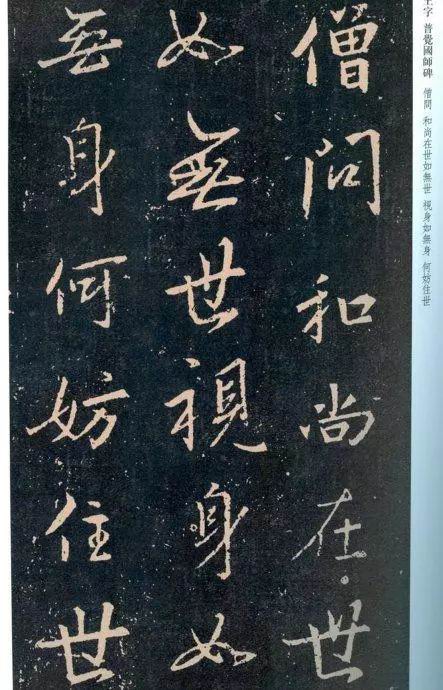 王字 普覺國師碑 僧問 和尚在世如無世 視身如無身 何妨住世
僧問和尚在世
如無世視身如
無身何妨住世